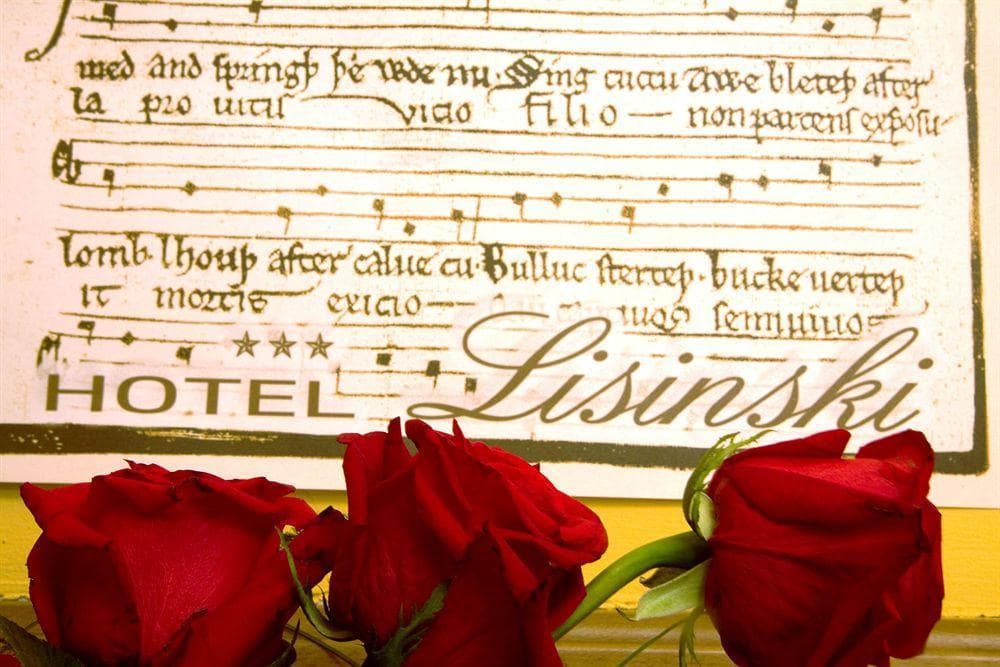 med and springþ þe wde nu. Sing cuccu Awe bleteþ after
la pro uitis vicio filio — non parcens exposu-
lomb. lhouþ after calue cu. Bulluc sterteþ. bucke uerteþ
it mortis exicio — uos semiuiuos
★★★
HOTEL Lisinski